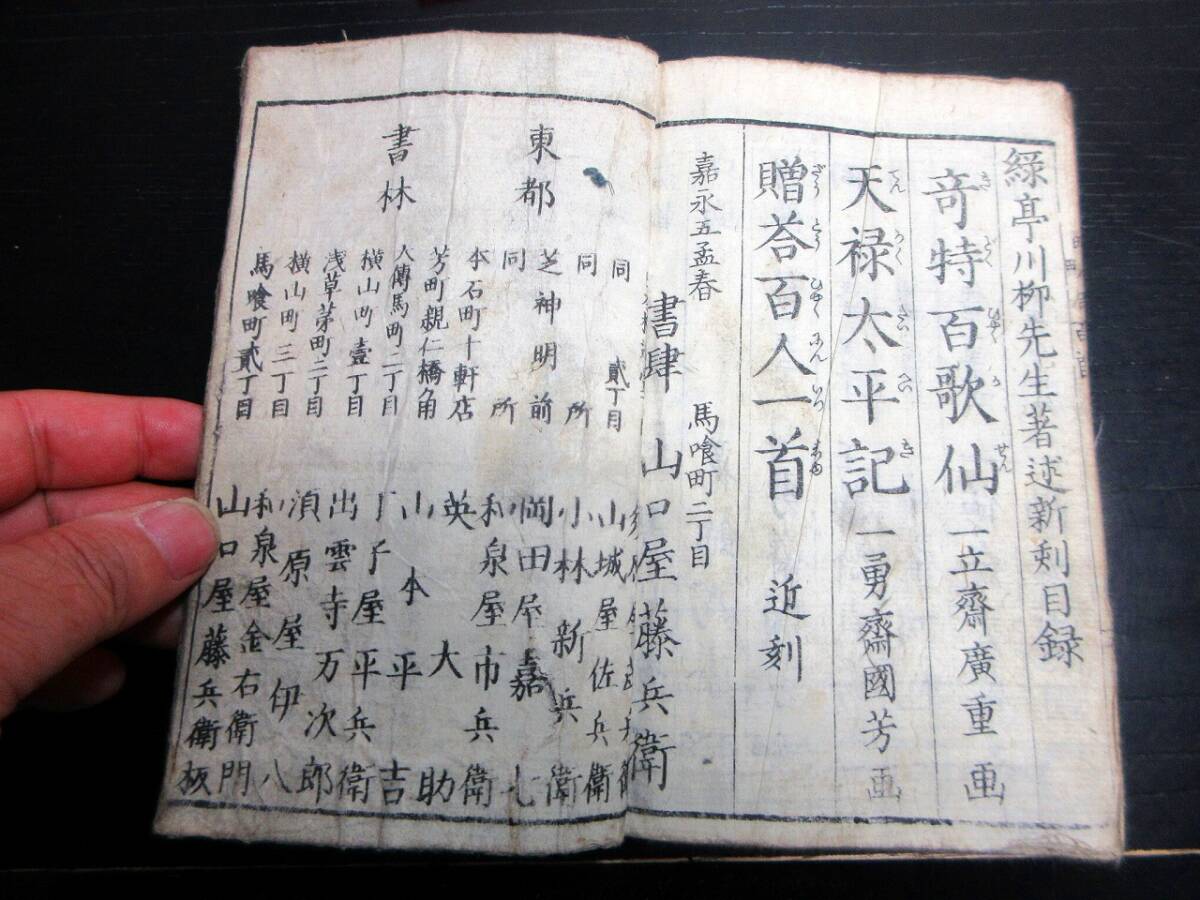 緑亭川柳先生著述新刻目録
竒特百歌仙 一立齋廣重画
きどくひやくかせん
天禄太平記 一勇齋國芳画
てんろくたいへいき
贈荅百人一首 近刻
ざうとうひやくにんいつしゆ
嘉永五孟春 馬喰町二丁目
書肆 山口屋藤兵衛
東都
書林
同 貳丁目 山城屋佐兵衛
同所 小林新兵衛
芝神明前 岡田屋嘉七
同所 和泉屋市兵衛
本石町十軒店 英大助
芳町親仁橋角 山本平吉
大傳馬町二丁目 丁子屋平兵衛
横山町壹丁目 出雲寺万次郎
浅草茅町二丁目 須原屋伊八
横山町三丁目 和泉屋金右衛門
馬喰町貳丁目 山口屋藤兵衛板